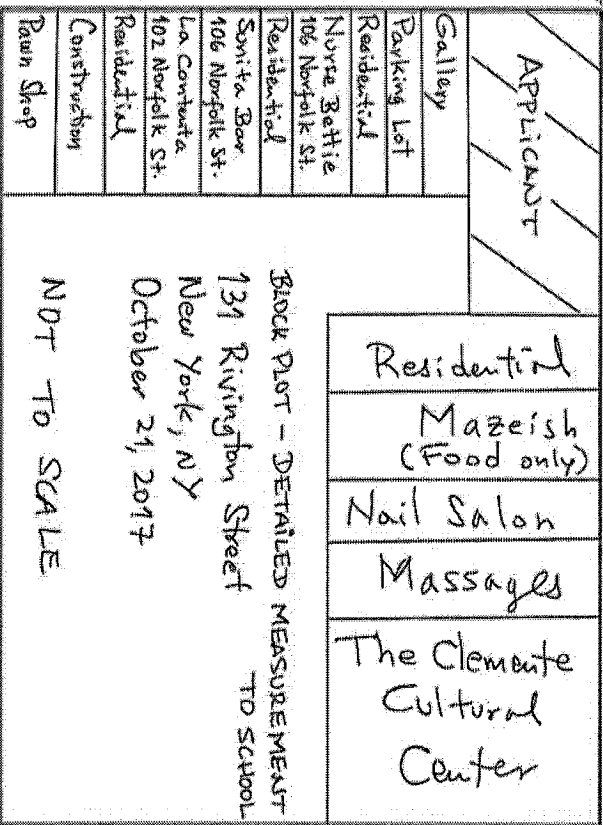 APPLICANT
Gallery
Parking Lot
Residential
Nurse Bettie
106 Norfolk St.
Residential
Sonita Bar
106 Norfolk St.
La Contenta
102 Norfolk St.
Residential
Construction
Pawn Shop
Residential
Mazeish
(Food only)
Nail Salon
Massages
The Clemente
Cultural
Center
BLOCK PLOT - DETAILED MEASUREMENT
TO SCHOOL
131 Rivington Street
New York, NY
October 21, 2017
NOT TO SCALE